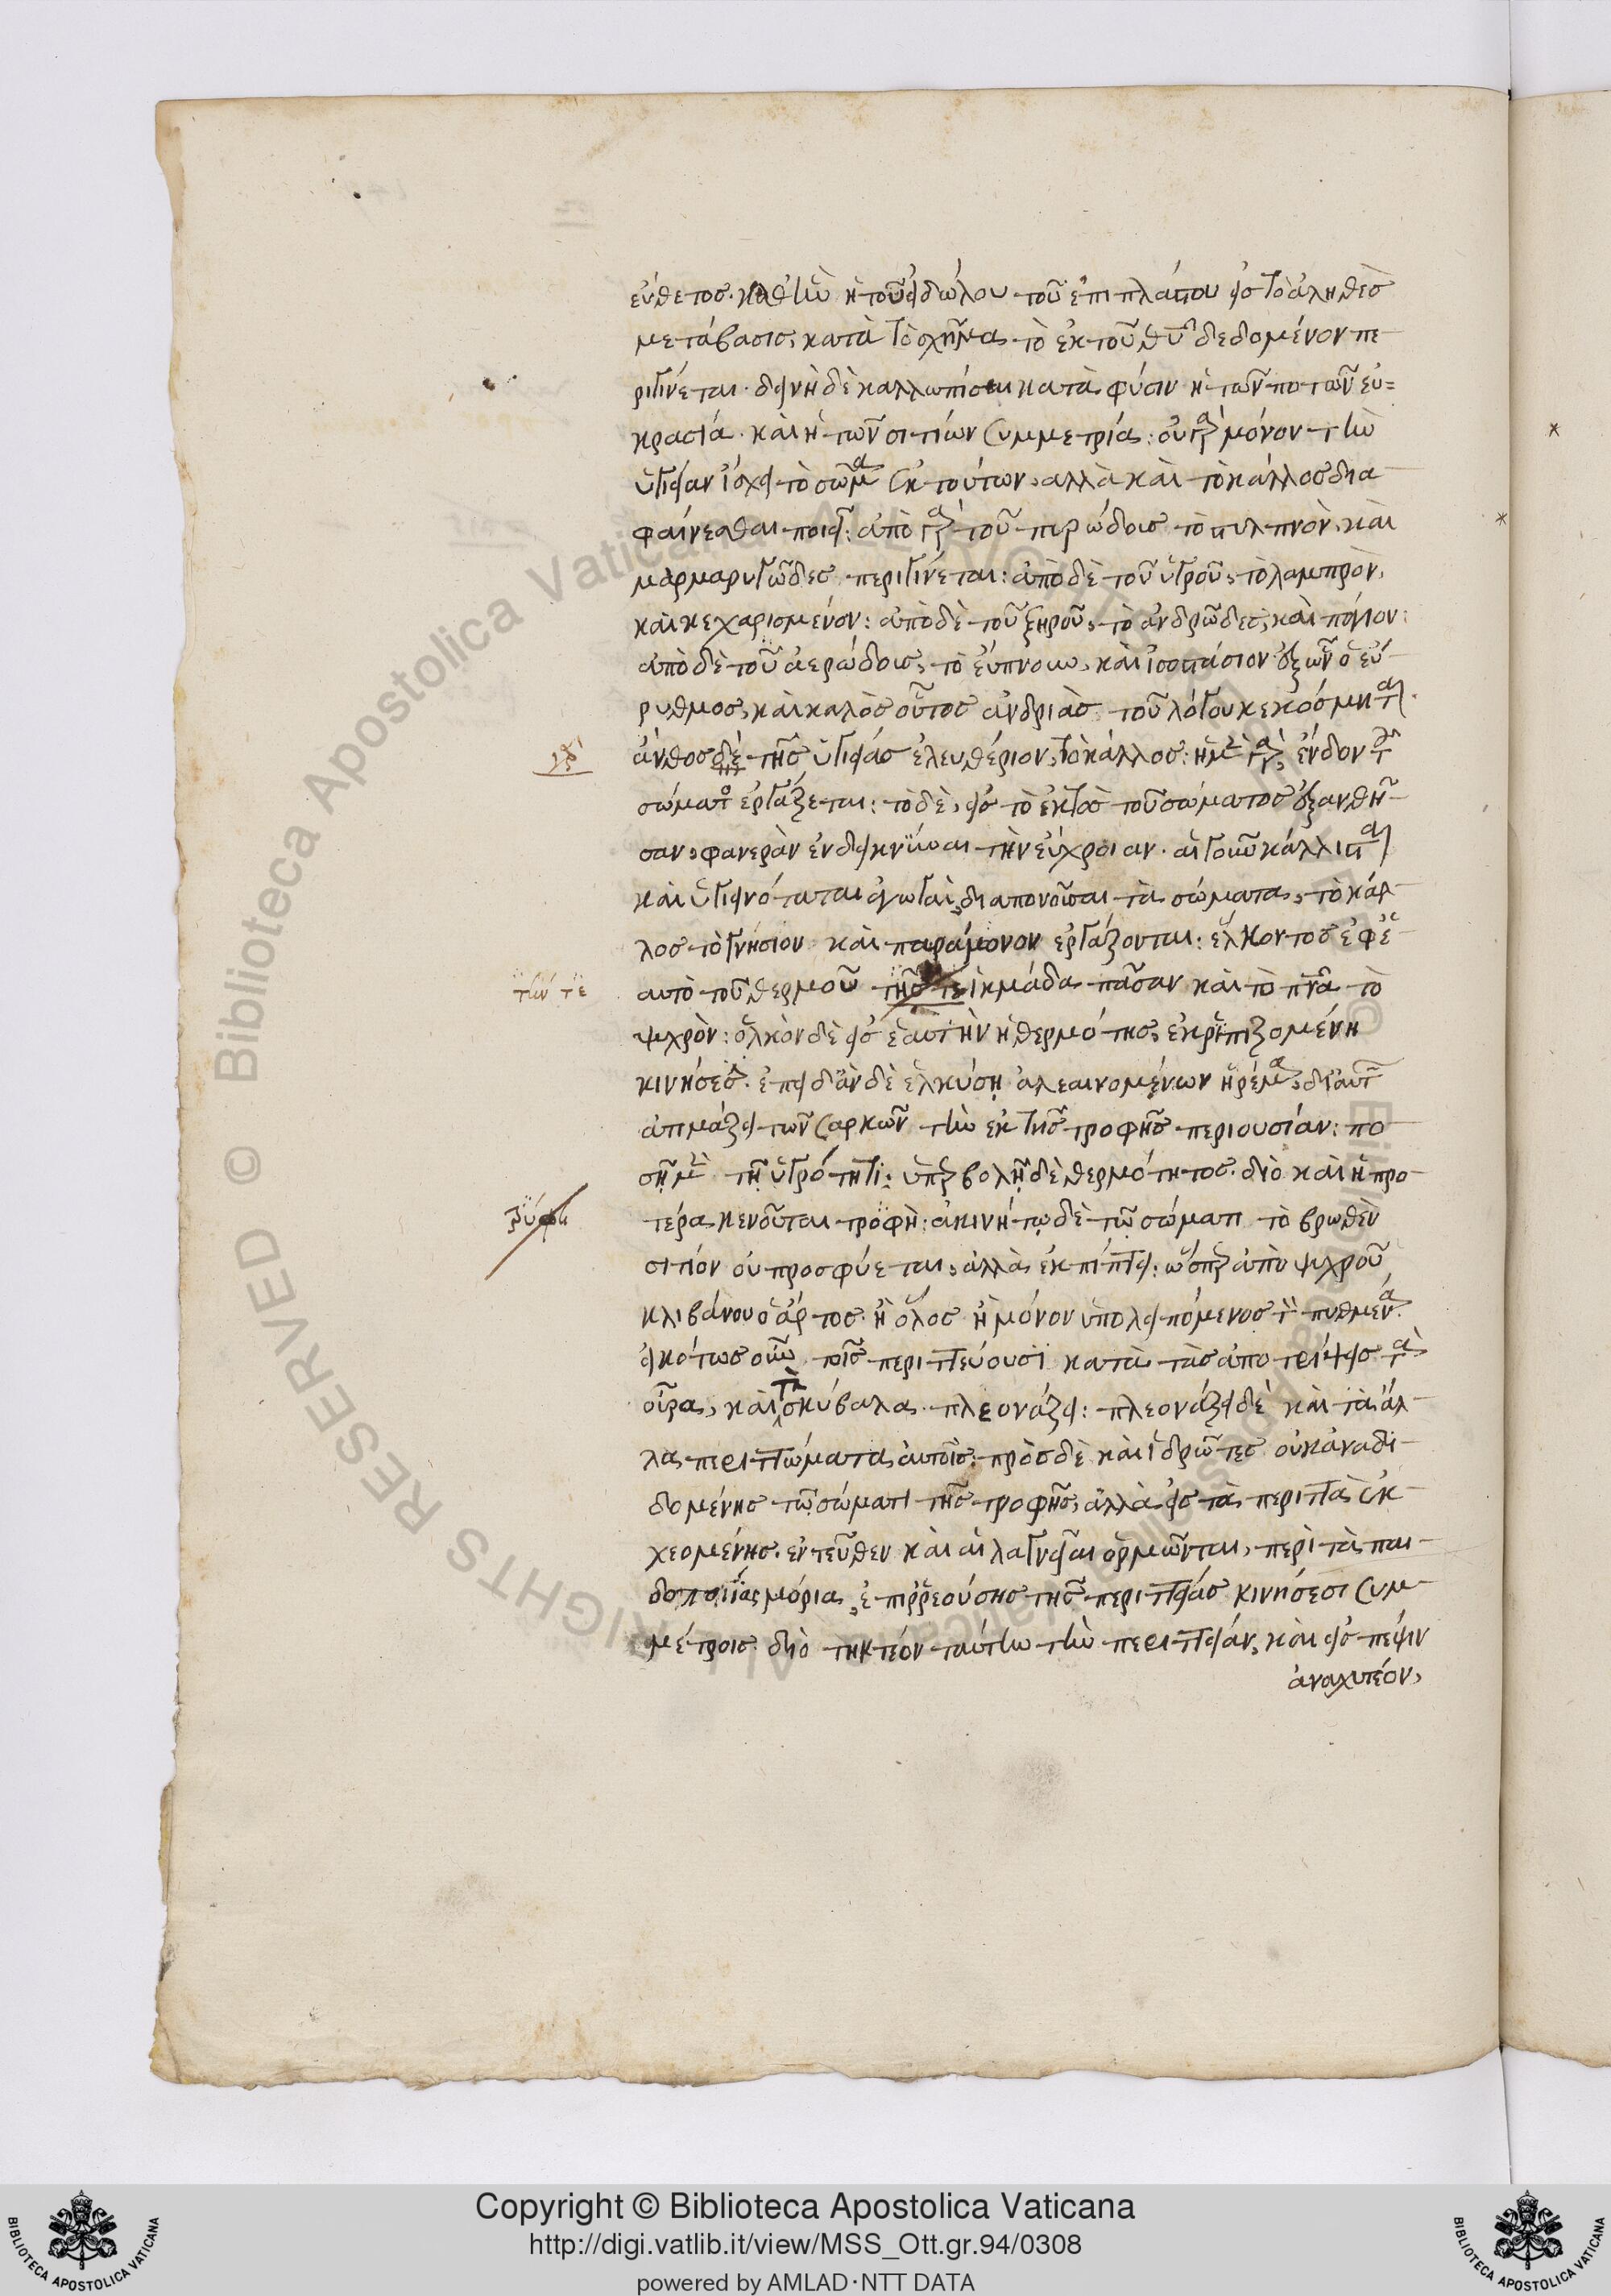 εὔθετος. καθ' ἣν ἡ τοῦ εἰδώλου τοῦ ἐπιπλάστου εἰς τὸ ἀληθὲς
μετάβασις, κατὰ τὸ σχῆμα τὸ ἐκ τοῦ θυ δεδομένον πε
ριγίνεται. δεινὴ δὲ καλλωπίσαι κατὰ φύσιν ἡ τῶν ποτῶν εὐ=
κρασία. καὶ ἡ τῶν σιτίων συμμετρία: οὐ γὰρ μόνον τὴν
ὑγίειαν ἴσχει τὸ σῶμα ἐκ τούτων, ἀλλὰ καὶ τὸ κάλλος δια
φαίνεσθαι ποιεῖ: ἀπὸ γὰρ τοῦ πυρώδους τὸ στιλπνὸν, καὶ
μαρμαρυγῶδες περιγίνεται: ἀπὸ δὲ τοῦ ὑγροῦ, τὸ λαμπρὸν,
καὶ κεχαρισμένον: ἀπὸ δὲ τοῦ ξηροῦ, τὸ ἀνδρῶδες, καὶ πάγιον:
ἀπὸ δὲ τοῦ ἀερώδους, τὸ εὔπνουν, καὶ ἰσοστάσιον ἐξ ὧν ὁ εὔ
ρυθμος, καὶ καλὸς οὗτος ἀνδριὰς τοῦ λόγου κεκόσμηται.
ἄνθος δὲ τῆς ὑγιείας ἐλευθέριον, τὸ κάλλος: ἡ μὲν γὰρ, ἔνδον τοῦ
σώματος ἐργάζεται: τὸ δὲ, εἰς τὸ ἐκτὸς τοῦ σώματος ἐξανθῆ
σαν, φανερὰν ἐνδείκνυσαι τὴν εὔχροιαν. αἱ γοῦν κάλλισται
καὶ ὑγιεινόταται ἀγωγαὶ, διαπονοῦσαι τὰ σώματα, τὸ κάλ
λος τὸ γνήσιον καὶ παράμονον ἐργάζονται: ἕλκοντος ἐφ' ἑ
τῶν τε
αὑτὸ τοῦ θερμοῦ τῆς τε ἰκμάδα πᾶσαν καὶ τὸ πνα τὸ
ψυχρὸν: ὁλκὸν δὲ εἰς ἑαυτὴν ἡ θερμότης, ἐκριπιζομένη
κινήσεσι. ἐπειδὰν δὲ ἑλκύσῃ ἀλεαινομένων ἠρέμα, δι' αὐτῆς
ἀτμάζει τῶν σαρκῶν τὴν ἐκ τῆς τροφῆς περιουσίαν: πο
σῇ μὲν τῇ ὑγρότητι: ὑπερβολῇ δὲ θερμότητος. διὸ καὶ ἡ προ
τέρα κενοῦται τροφὴ: ἀκινήτῳ δὲ τῷ σώματι τὸ βρωθὲν
σιτίον οὐ προσφύεται, ἀλλὰ ἐκπίπτει: ὥσπερ ἀπὸ ψυχροῦ
κλιβάνου ὁ ἄρτος. ἢ ὅλος ἢ μόνον ὑπολειπόμενος τὸν πυθμένα.
εἰκότως οὖν τοῖς περιττεύουσι κατὰ τὰς ἀποτρίψεις τὰ
οὖρα, καὶ τὰ σκύβαλα πλεονάζει: πλεονάζει δὲ καὶ τὰ ἄλ
λα περιττώματα αὐτοῖς: πρὸς δὲ καὶ ἱδρῶτες οὐκ ἀναδι
δομένης τῷ σώματι τῆς τροφῆς, ἀλλὰ εἰς τὰ περιττὰ ἐκ
χεομένης. ἐντεῦθεν καὶ αἱ λαγνεῖαι ὁρμῶνται, περὶ τὰ παι
δοποιΐας μόρια, ἐπιρρεούσης τῆς περιττείας κινήσεσι συμ
μέτροις. διὸ τηκτέον ταύτην τὴν περιττείαν, καὶ εἰς πέψιν
ἀναχυτέον,
Copyright © Biblioteca Apostolica Vaticana
http://digi.vatlib.it/view/MSS_Ott.gr.94/0308
powered by AMLAD·NTT DATA
BIBLIOTECA APOSTOLICA VATICANA
BIBLIOTECA APOSTOLICA VATICANA